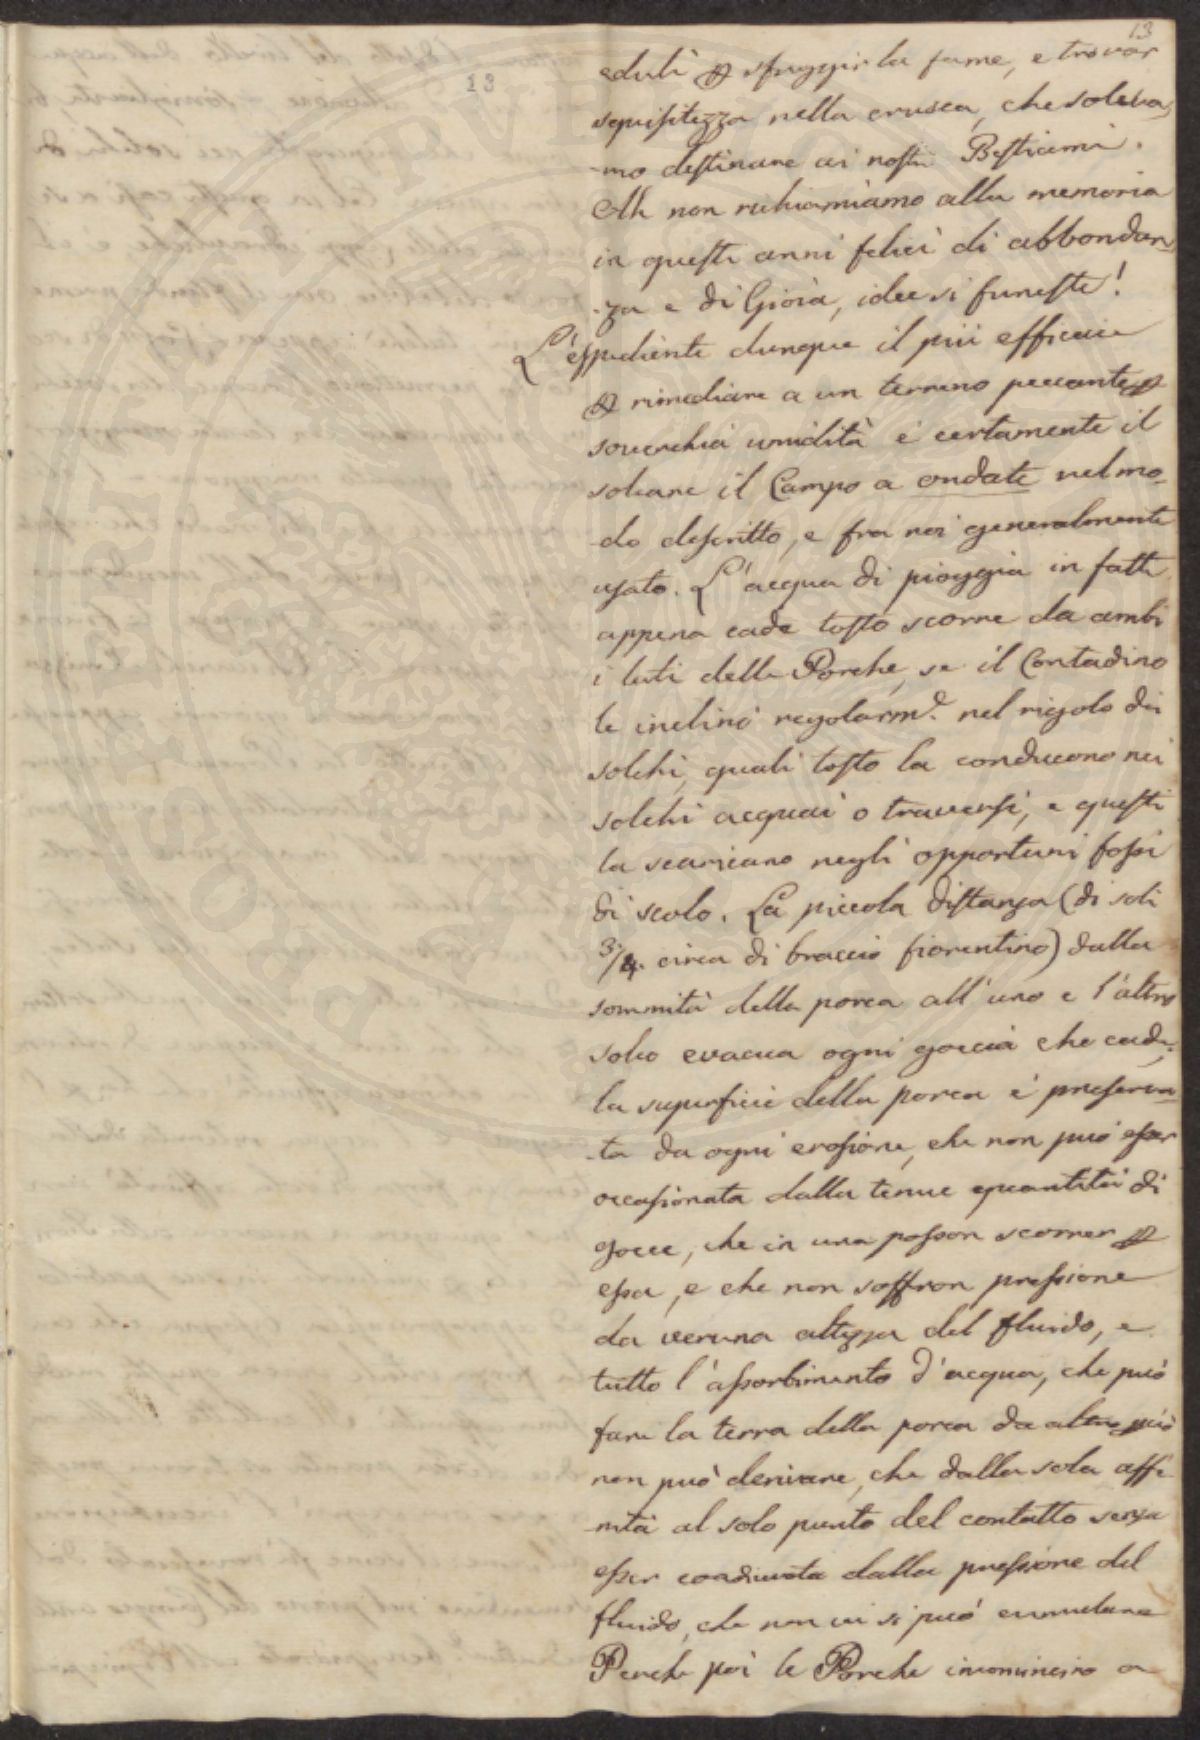 13
13
eduli ꝑ sfuggir la fame, e trovar
squisitezza nella crusca, che soleva,
-mo destinare ai nostri Bestiami.
Ah non richiamiamo alla memoria
in questi anni felici di abbondan-
-za e di Gioia, idee si funeste!
L'espediente dunque il più efficace
ꝑ rimediare a un terreno peccante ꝑ
soverchia umidità è certamente il
solcare il Campo a ondate nel mo-
-do descritto, e fra noi generalmente
usato. L'acqua di pioggia in fatti
appena cade tosto scorre da ambi
i lati delle Porche, se il Contadino
le inclinò regolarm.e nel rigolo dei
solchi, quali tosto la conducono nei
solchi acquai o traversi, e questi
la scaricano negli opportuni fossi
di scolo. La piccola distanza (di soli
3/4 circa di braccio fiorentino) dalla
sommità della porca all'uno e l'altro
solco evacua ogni goccia che cade,
la superficie della porca è preserva-
-ta da ogni erosione, che non può esser
occasionata dalla tenue quantità di
gocce, che in una posson scorrer ꝑ
essa, e che non soffron pressione
da veruna altezza del fluido, e
tutto l'assorbimento d'acqua, che può
fare la terra della porca da altro
non può derivare, che dalla sola affi-
-nità al solo punto del contatto senza
esser coadiuvata dalla pressione del
fluido, che non vi si può cumulare
Perche poi le Porche incominciano a
PROPRIETÀ PUBBLICA